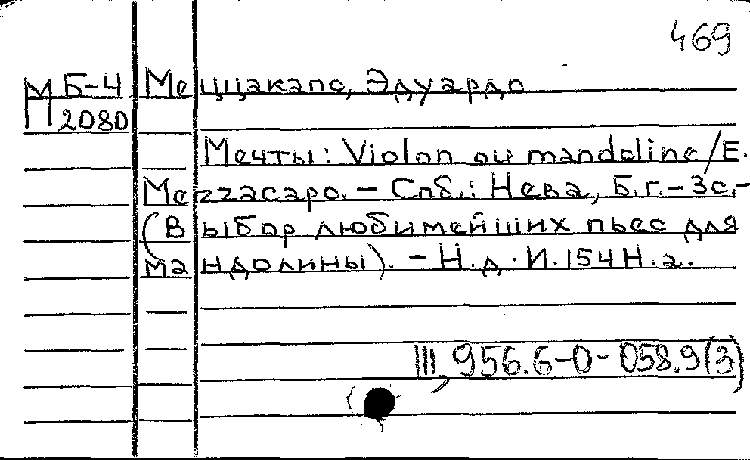 469
М Б-4 Меццакапо, Эдуардо
2080
Мечты: Violon ou mandoline/E.
Mezzacapo. – Спб.: Нева, Б.г. – 3с. –
(Выбор любимейших пьес для
мандолины). – Н.д. И.154Н.д.
III, 956.6-0-058.9(3)